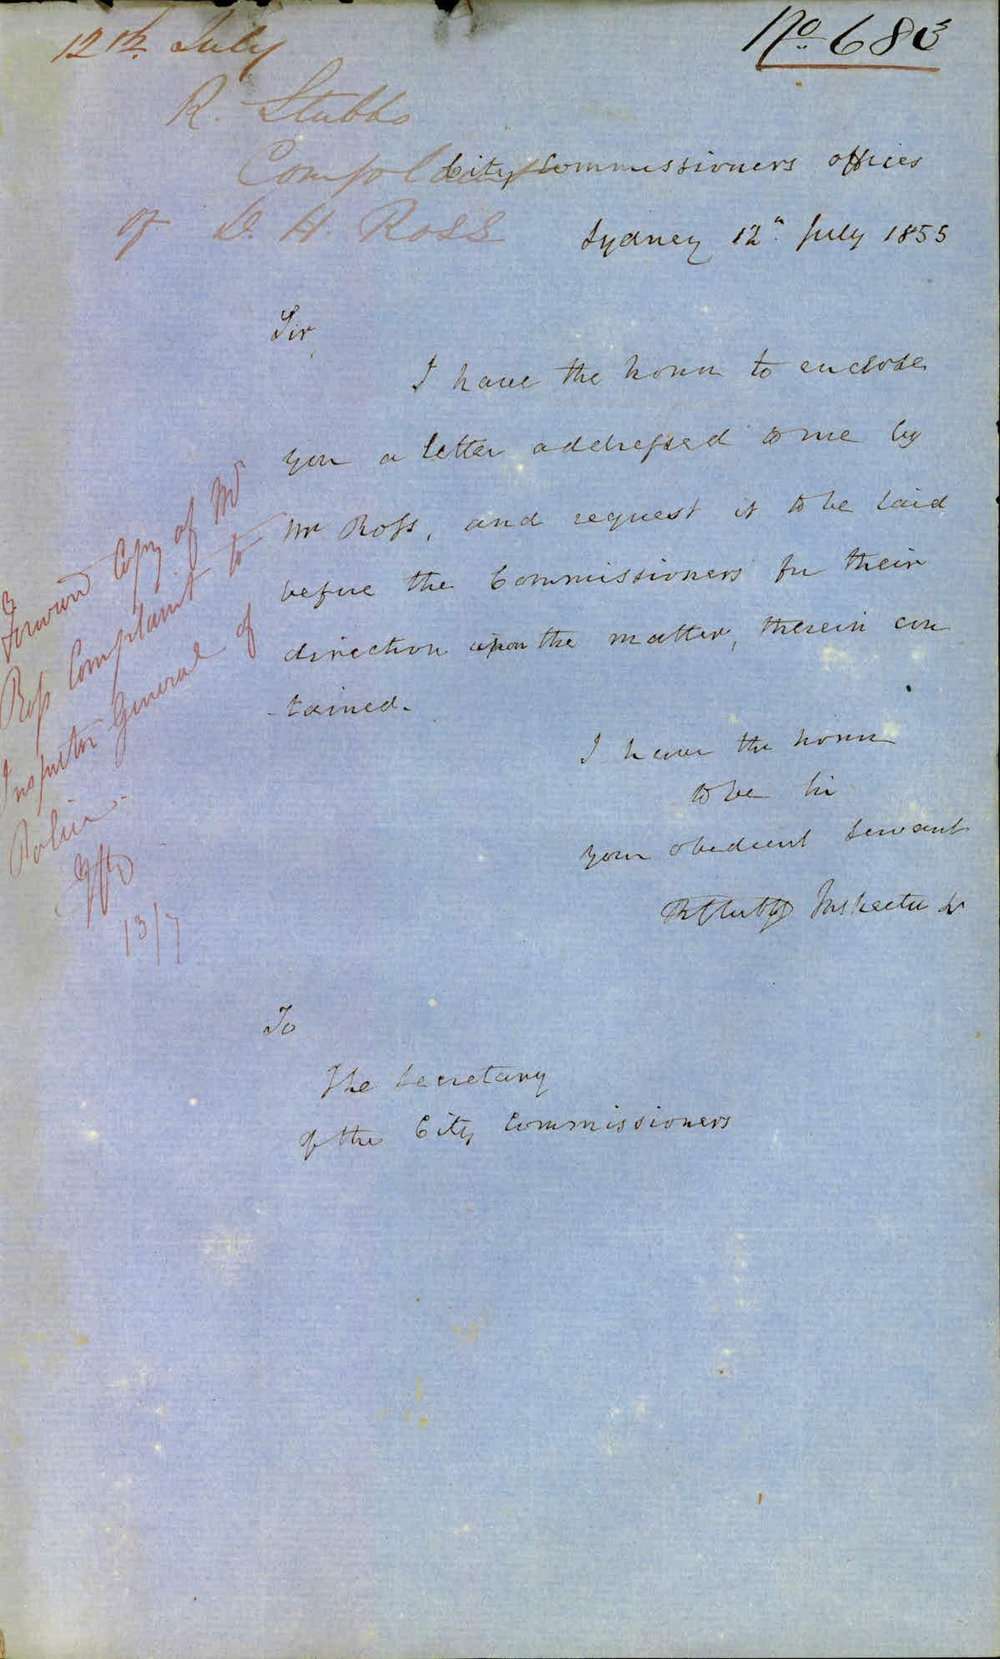 12th July
No. 683
R. Stubbs
Complaint
City Commissioners offices
of D. H. Ross
Sydney 12th July 1855
Sir,
I have the honor to enclose
you a letter addressed to me by
Mr Ross, and request it to be laid
before the Commissioners for their
direction upon the matter, therein con
-tained.
I have the honor
to be Sir
your obedient Servant
RStubbs Inspector
To
The Secretary
of the City Commissioners
Forward Copy of Mr
Ross Complaint to
Inspector General of
Police.
13/7